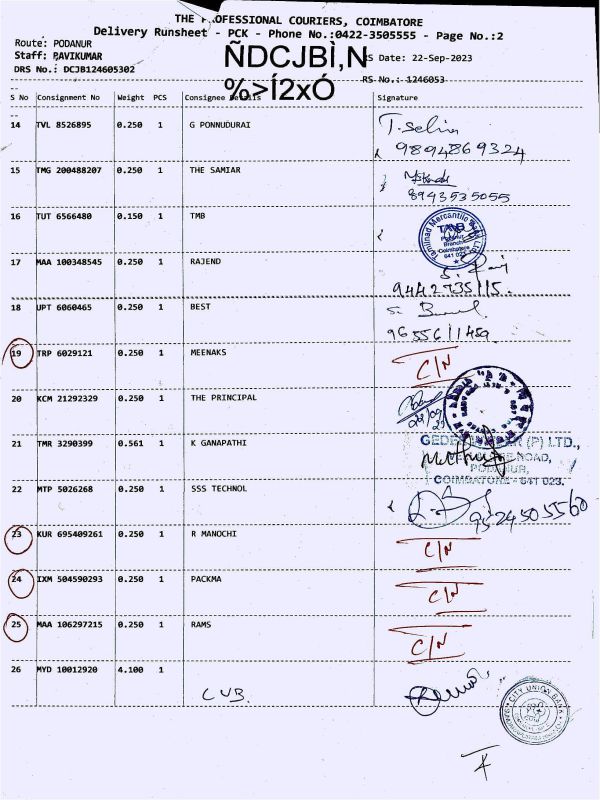 THE PROFESSIONAL COURIERS, COIMBATORE
Delivery Runsheet - PCK - Phone No.:0422-3505555 - Page No.:2
Route: PODANUR
Staff: RAVIKUMAR
DRS No.: DCJB124605302
ÑDCJBÌ,N
%>Í2xÓ
RS Date: 22-Sep-2023
RS No.: 1246053
S No Consignment No Weight PCS Consignee Details Signature
14 TVL 8526895 0.250 1 G PONNUDURAI T. Selin
9894869324
15 TMG 200488207 0.250 1 THE SAMIAR
8943535055
16 TUT 6566480 0.150 1 TMB
Tamilnad Mercantile Bank Ltd.
TMB
Podanur
Branch
Coimbatore
641 023
17 MAA 100348545 0.250 1 RAJEND S. Ravi
9442735115.
18 UPT 6060465 0.250 1 BEST
9655611459
19 TRP 6029121 0.250 1 MEENAKS C/N
20 KCM 21292329 0.250 1 THE PRINCIPAL
22/09/23
21 TMR 3290399 0.561 1 K GANAPATHI
(P) LTD.,
ROAD,
PODANUR,
COIMBATORE - 641 023.
22 MTP 5026268 0.250 1 SSS TECHNOL
9524505560
23 KUR 695409261 0.250 1 R MANOCHI C/N
24 IXM 504590293 0.250 1 PACKMA C/N
25 MAA 106297215 0.250 1 RAMS C/N
26 MYD 10012920 4.100 1
CUB.
CITY UNION BANK